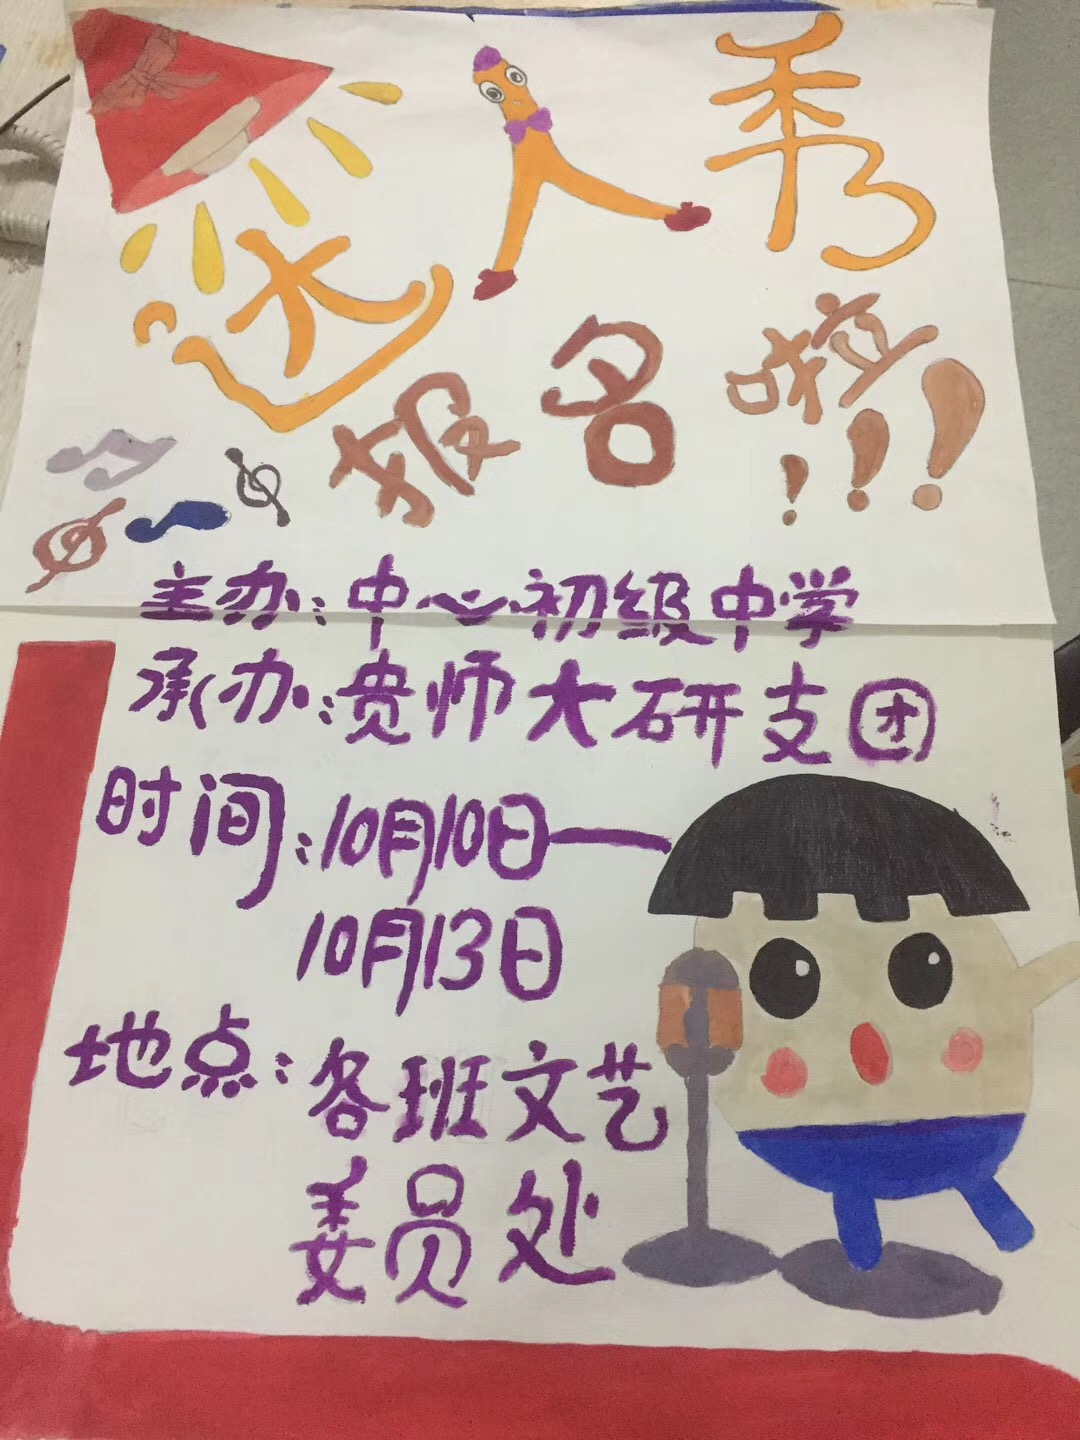 达人秀
报名啦!!!
主办:中心初级中学
承办:贵师大研支团
时间:10月10日—
10月13日
地点:各班文艺
委员处